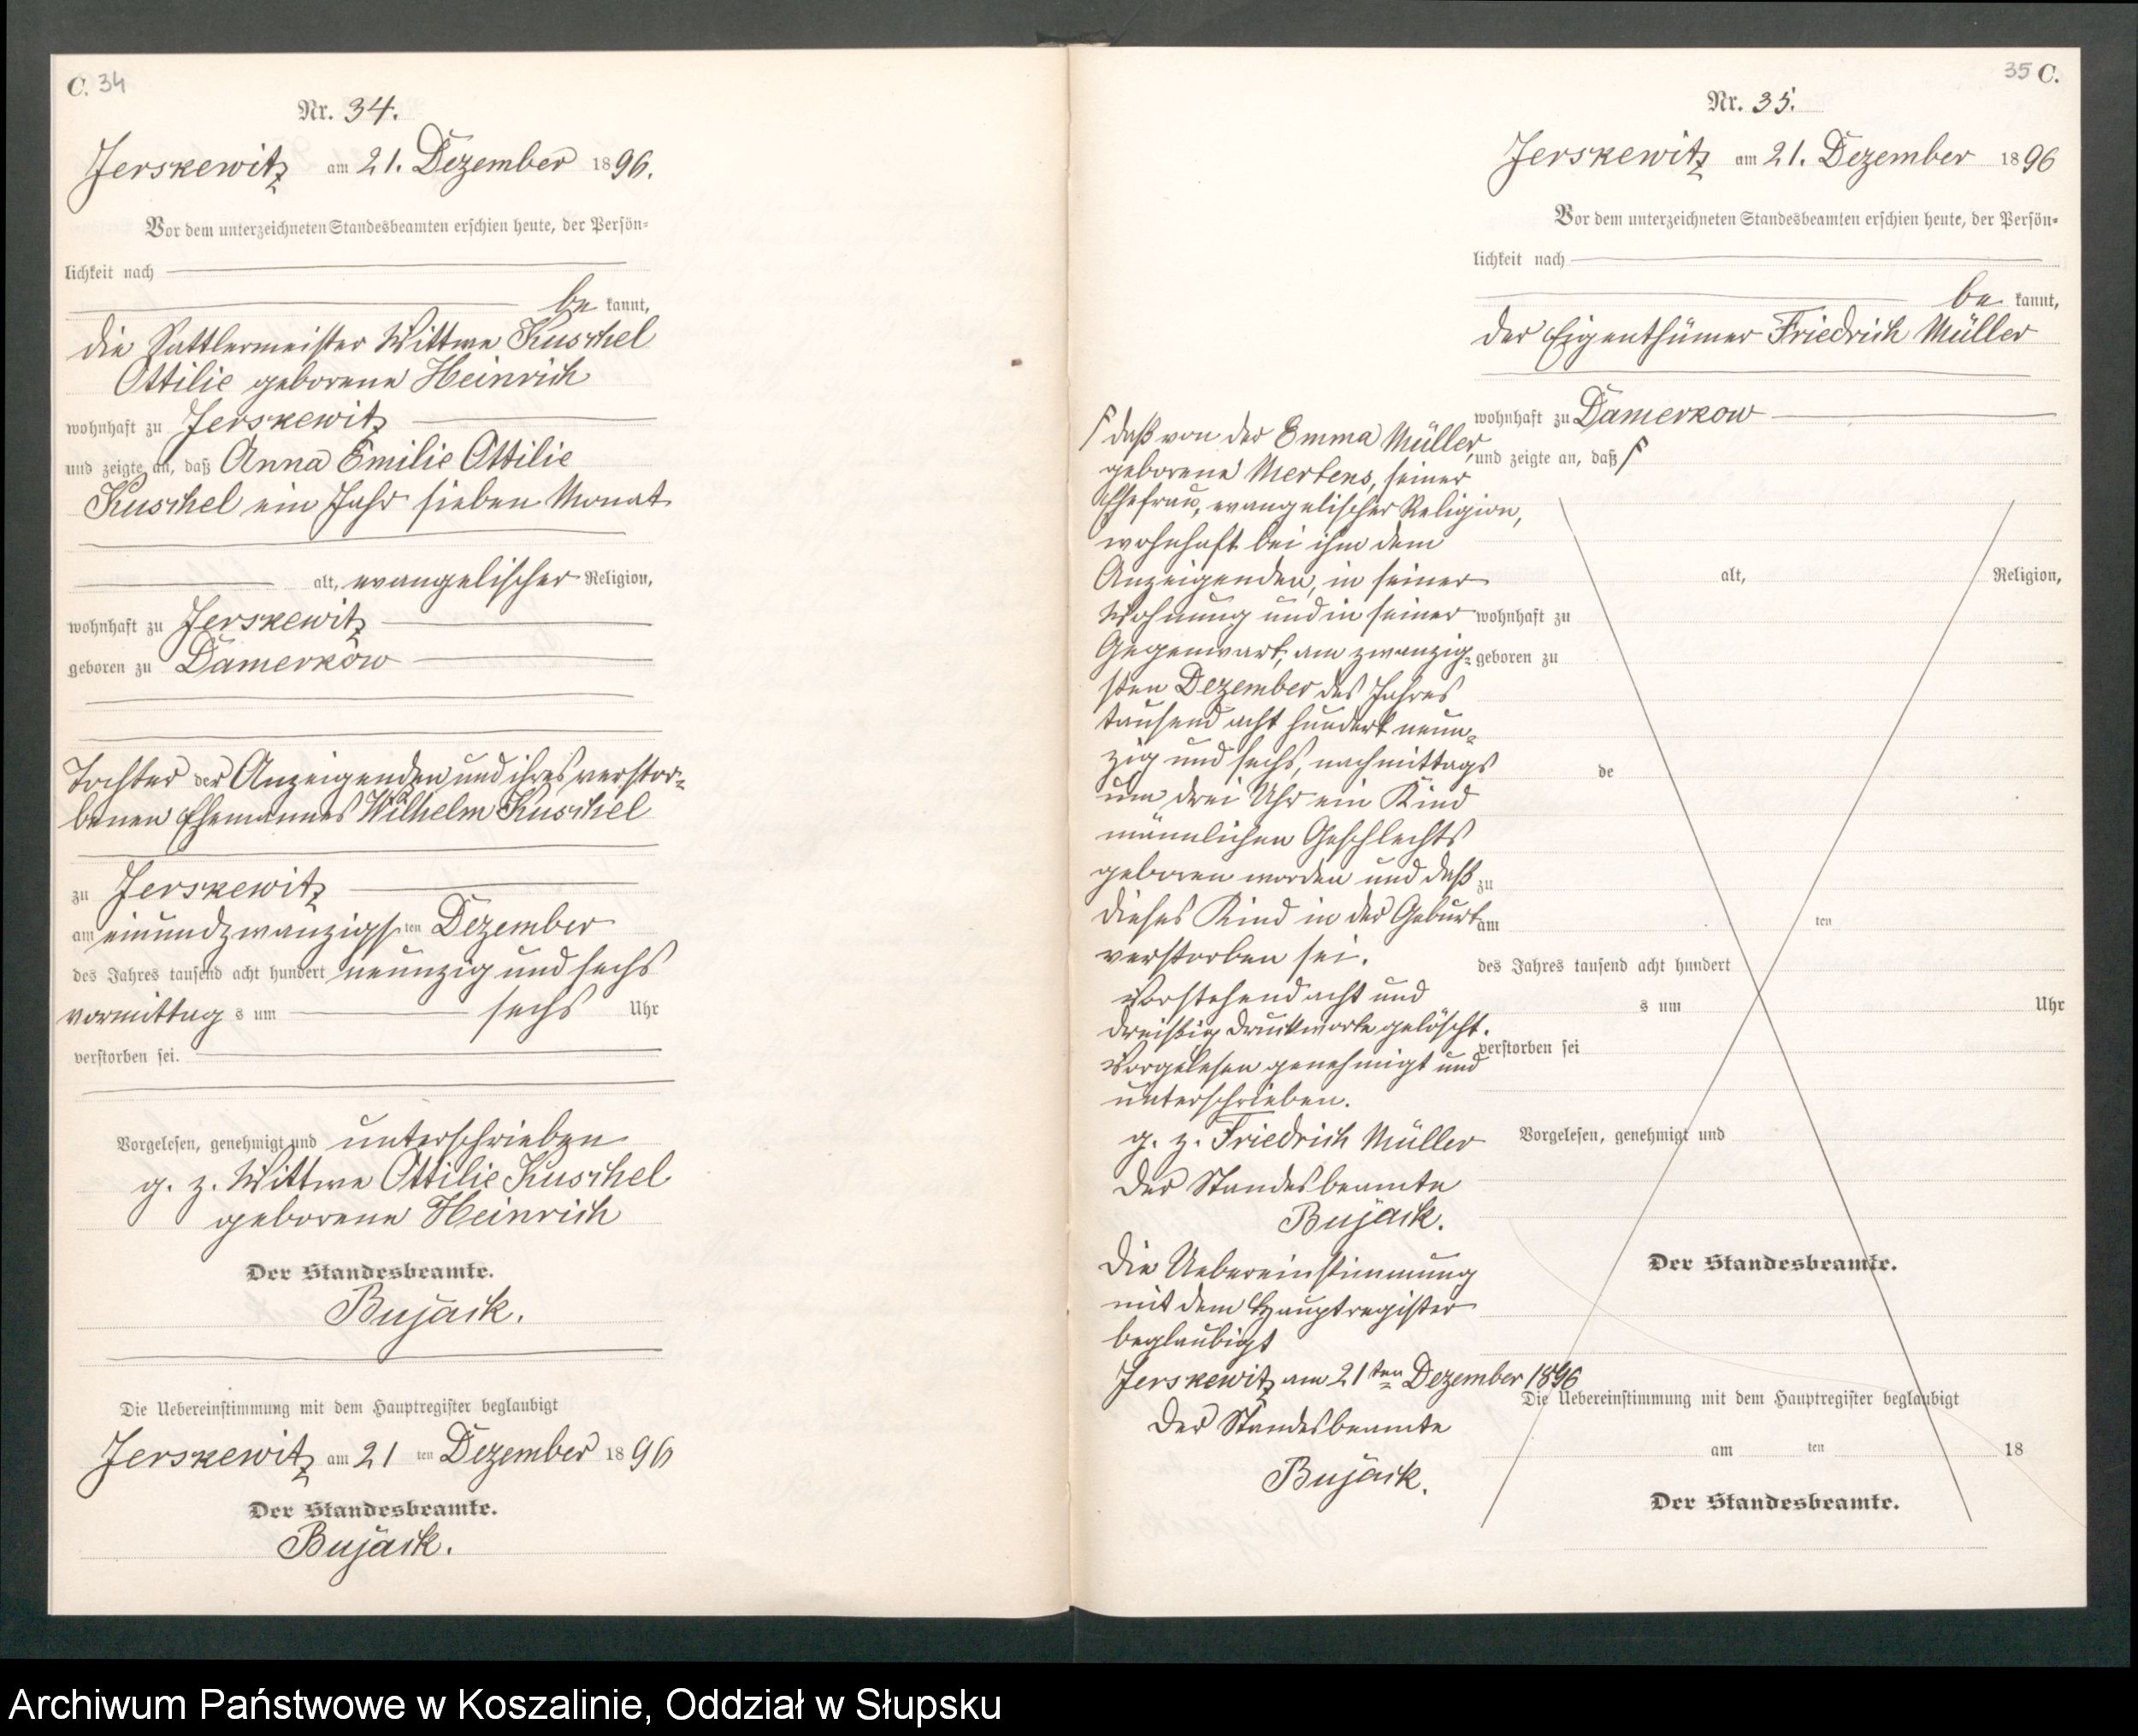 C. 34
Nr. 34.
Jerskewitz am 21. Dezember 1896.
Vor dem unterzeichneten Standesbeamten erschien heute, der Persön-
lichkeit nach
be kannt,
die Sattlermeister Wittwe Kuschel
Ottilie geborene Heinrich
wohnhaft zu Jerskewitz
und zeigte an, daß Anna Emilie Ottilie
Kuschel ein Jahr sieben Monat
alt, evangelischer Religion,
wohnhaft zu Jerskewitz
geboren zu Damerkow
Tochter der Anzeigenden und ihres verstor-
benen Ehemannes Wilhelm Kuschel
zu Jerskewitz
am einundzwanzigsten Dezember
des Jahres tausend acht hundert neunzig und sechs
vormittag s um sechs Uhr
verstorben sei.
Vorgelesen, genehmigt und unterschrieben
g. z. Wittwe Ottilie Kuschel
geborene Heinrich
Der Standesbeamte.
Bujack.
Die Uebereinstimmung mit dem Hauptregister beglaubigt
Jerskewitz am 21 ten Dezember 1896
Der Standesbeamte.
Bujack.
35 C.
Nr. 35.
Jerskewitz am 21. Dezember 1896
Vor dem unterzeichneten Standesbeamten erschien heute, der Persön-
lichkeit nach
be kannt,
der Eigenthümer Friedrich Müller
wohnhaft zu Damerkow
und zeigte an, daß
daß von der Emma Müller,
geborene Mertens, seiner
Ehefrau, evangelischer Religion,
wohnhaft bei ihm dem
Anzeigenden, in seiner
Wohnung und in seiner
Gegenwart, am zwanzig-
sten Dezember des Jahres
tausend acht hundert neun-
zig und sechs, nachmittags
um drei Uhr ein Kind
männlichen Geschlechts
geboren worden und daß
dieses Kind in der Geburt
verstorben sei.
Vorstehend acht und
dreißig Druckworte gelöscht.
Vorgelesen genehmigt und
unterschrieben.
g. z. Friedrich Müller
Der Standesbeamte
Bujack.
Die Uebereinstimmung
mit dem Hauptregister
beglaubigt
Jerskewitz am 21ten Dezember 1896
Der Standesbeamte
Bujack.
alt, Religion,
wohnhaft zu
geboren zu
de
zu
am ten
des Jahres tausend acht hundert
s um Uhr
verstorben sei
Vorgelesen, genehmigt und
Der Standesbeamte.
Die Uebereinstimmung mit dem Hauptregister beglaubigt
am ten 18
Der Standesbeamte.
Archiwum Państwowe w Koszalinie, Oddział w Słupsku